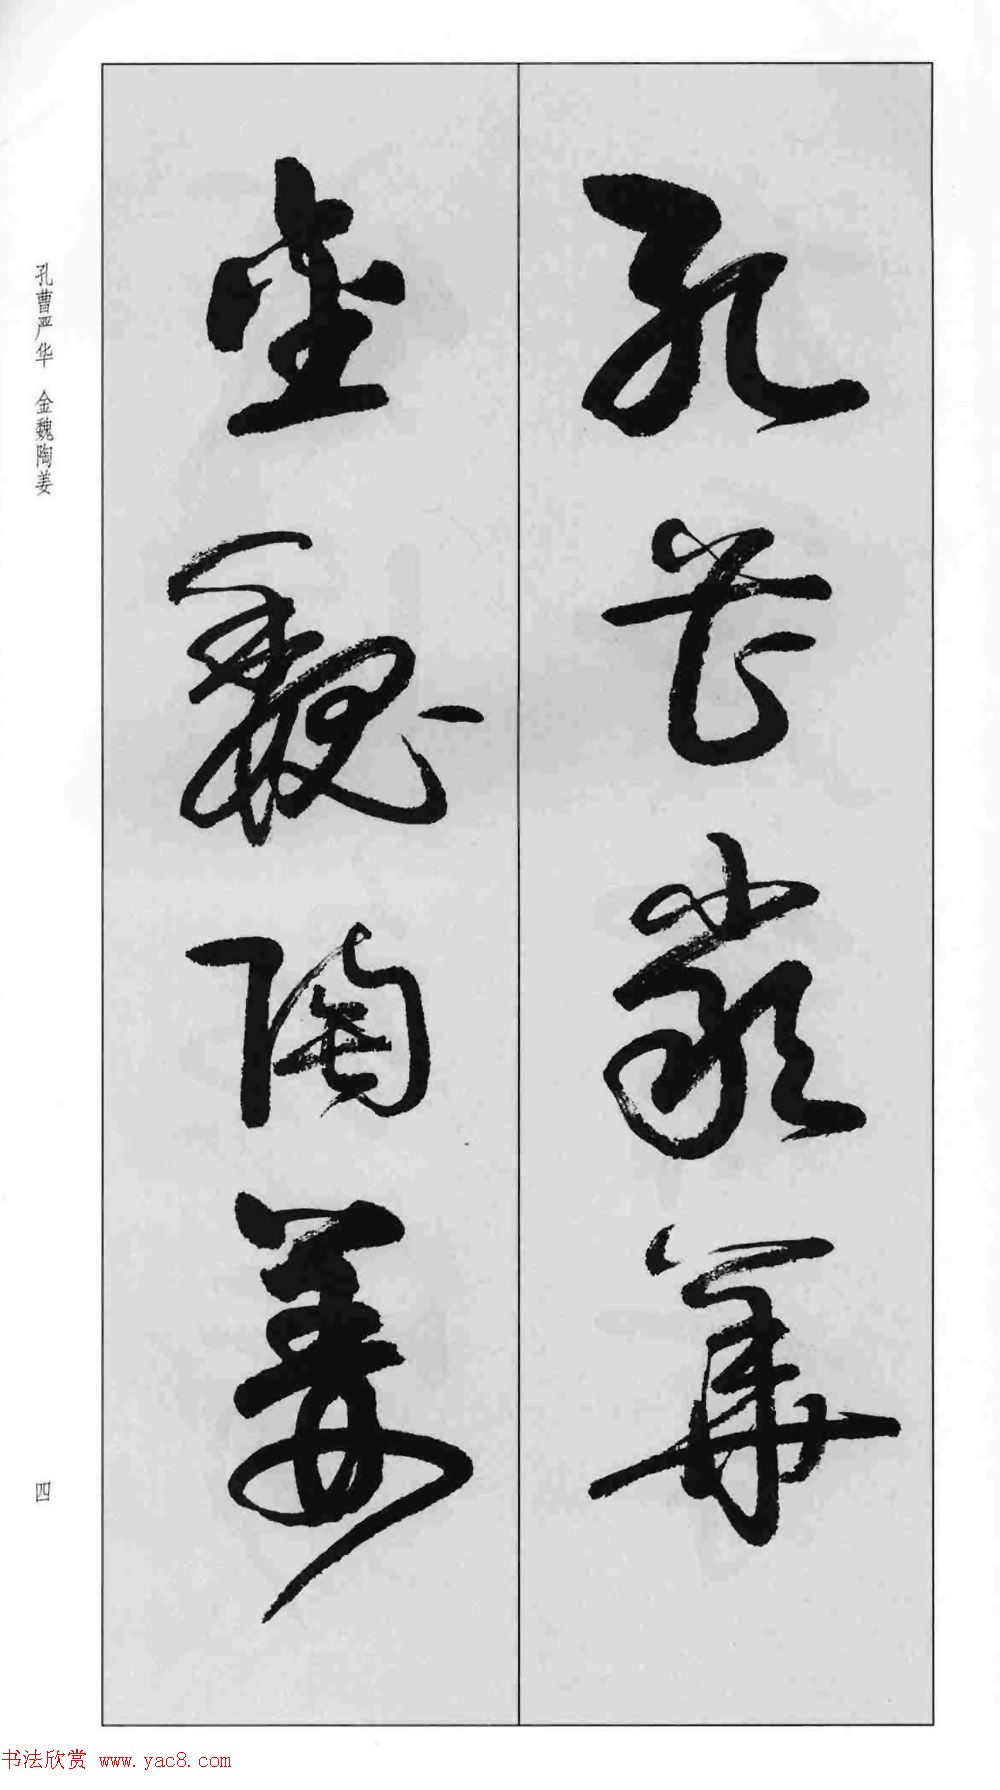 孔曹嚴華
金魏陶姜
孔曹严华 金魏陶姜
四
书法欣赏 www.yac8.com